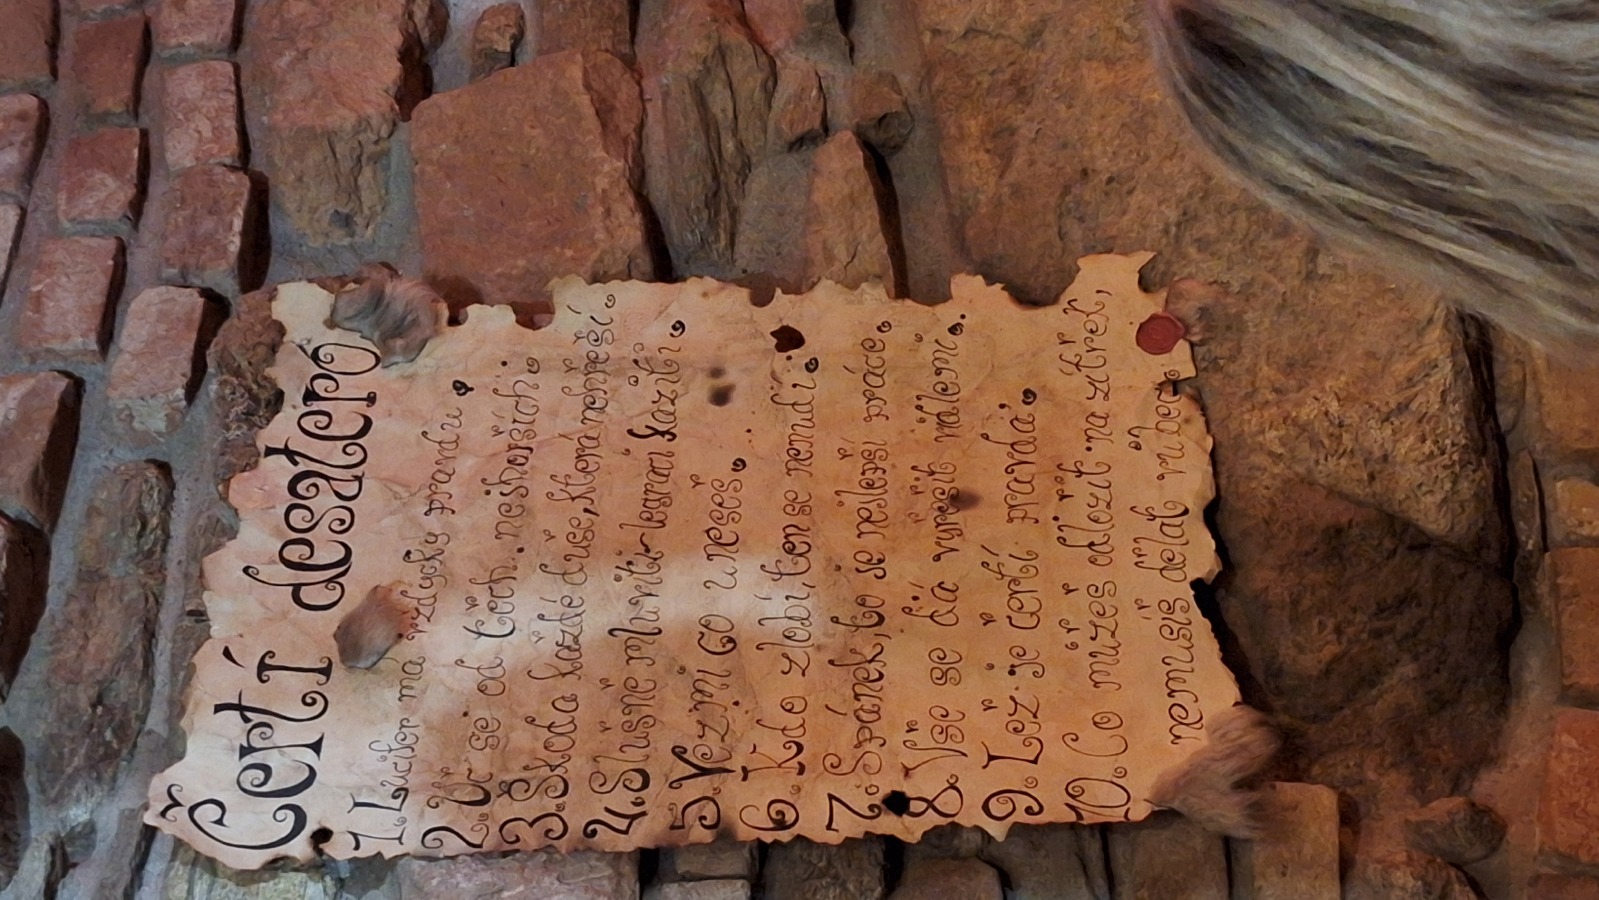 Čertí desatero
1. Lucifer má vždycky pravdu.
2. Uč se od těch nejhorších.
3. Škoda každé duše, která nehřeší.
4. Slušně mluviti - legraci kaziti.
5. Vezmi co uneseš.
6. Kdo zlobí, ten se nenudí.
7. Spánek, to je nejlepší práce.
8. Vše se dá vyřešit málem.
9. Lež je čertí pravda.
10. Co můžeš odložit na zítřek,
nemusíš dělat vůbec